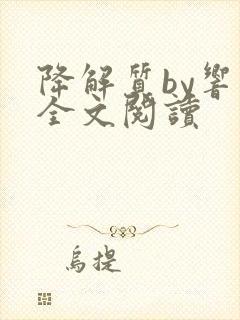 降解質by響
全文閱讀
烏提